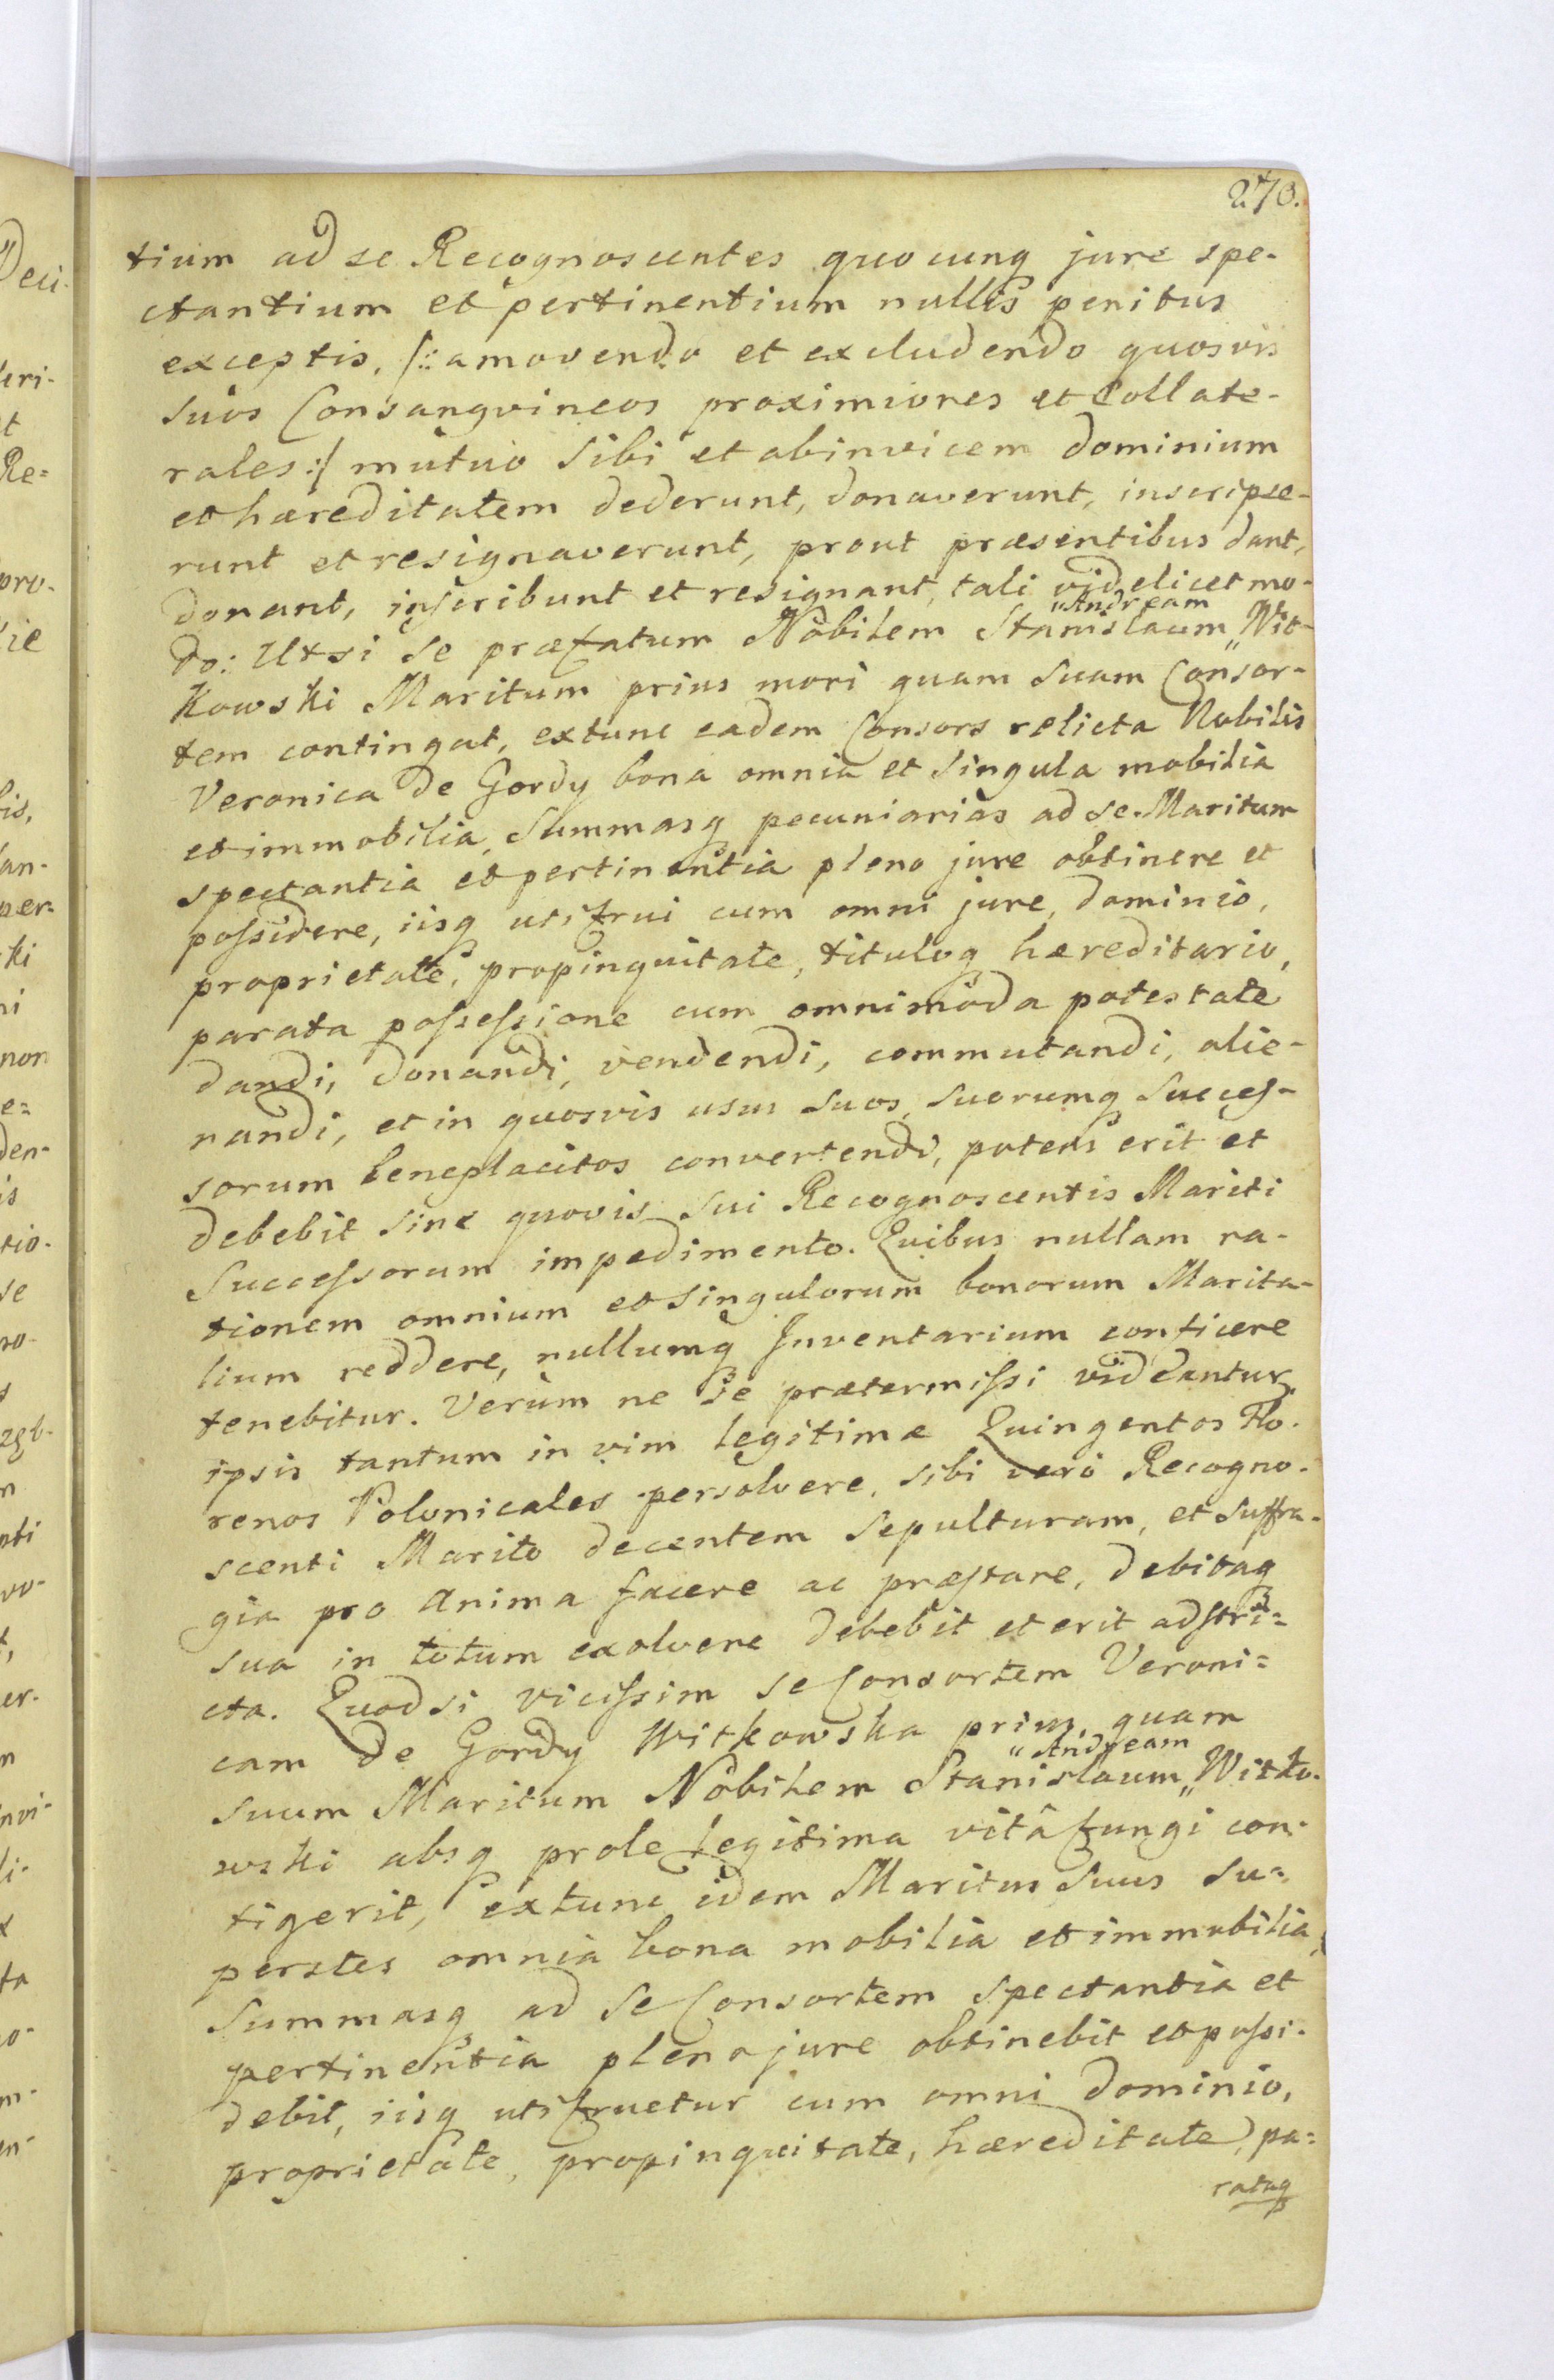 270.
tium ad se Recognoscentes quocunq jure spe-
ctantium et pertinentium nullis penitus
exceptis, /: amovendo et excludendo quosvis
suos Consangvineos proximiores et Collate-
rales :/ mutuo sibi et abinvicem dominium
et hæreditatem dederunt, donaverunt, inscripse-
runt et resignaverunt, prout præsentibus dant,
donant, inscribunt et resignant, tali videlicet mo-
"Andream
do: Ut si se præfatum Nobilem Stanislaum" Wit-
kowski Maritum prius mori quam suam Consor-
tem contingat, extunc eadem Consors relicta Nobilis
Veronica de Gordy bona omnia et singula mobilia
et immobilia, Summasq pecuniarias ad se Maritum
spectantia et pertinentia pleno jure obtinere et
possidere, iisq utifrui cum omni jure, dominio,
proprietate, propinquitate, tituloq hæreditario,
parata possessione cum omnimoda potestate
dandi, donandi, vendendi, commutandi, alie-
nandi, et in quosvis usus suos, suorumq Succes-
sorum beneplacitos convertendi, potens erit et
debebit sine quovis sui Recognoscentis Mariti
Successorum impedimento. Quibus nullam ra-
tionem omnium et singulorum bonorum Marita-
lium reddere, nullumq Inventarium conficere
tenebitur. Verùm ne se prætermissi videantur,
ipsis tantum in vim legitimæ Quingentos Flo-
renos Polonicales persolvere, sibi verò Recogno-
scenti Marito decentem sepulturam, et suffra-
gia pro Anima facere ac præstare, debitaq
sua in totum exolvere debebit et erit adstri=
cta. Quodsi vicissim se Consortem Veroni=
cam de Gordy Witkowska prius, quam
"Andream
suum Maritum Nobilem Stanislaum" Witko-
wski absq prole legitima vitâ fungi con-
tigerit, extunc idem Maritus suus su=
perstes omnia bona mobilia et immobilia,
Summasq ad se Consortem spectantia et
pertinentia pleno jure obtinebit et possi-
debit, iisq utifruetur cum omni dominio,
proprietate, propinquitate, hæreditate, pa=
rataq